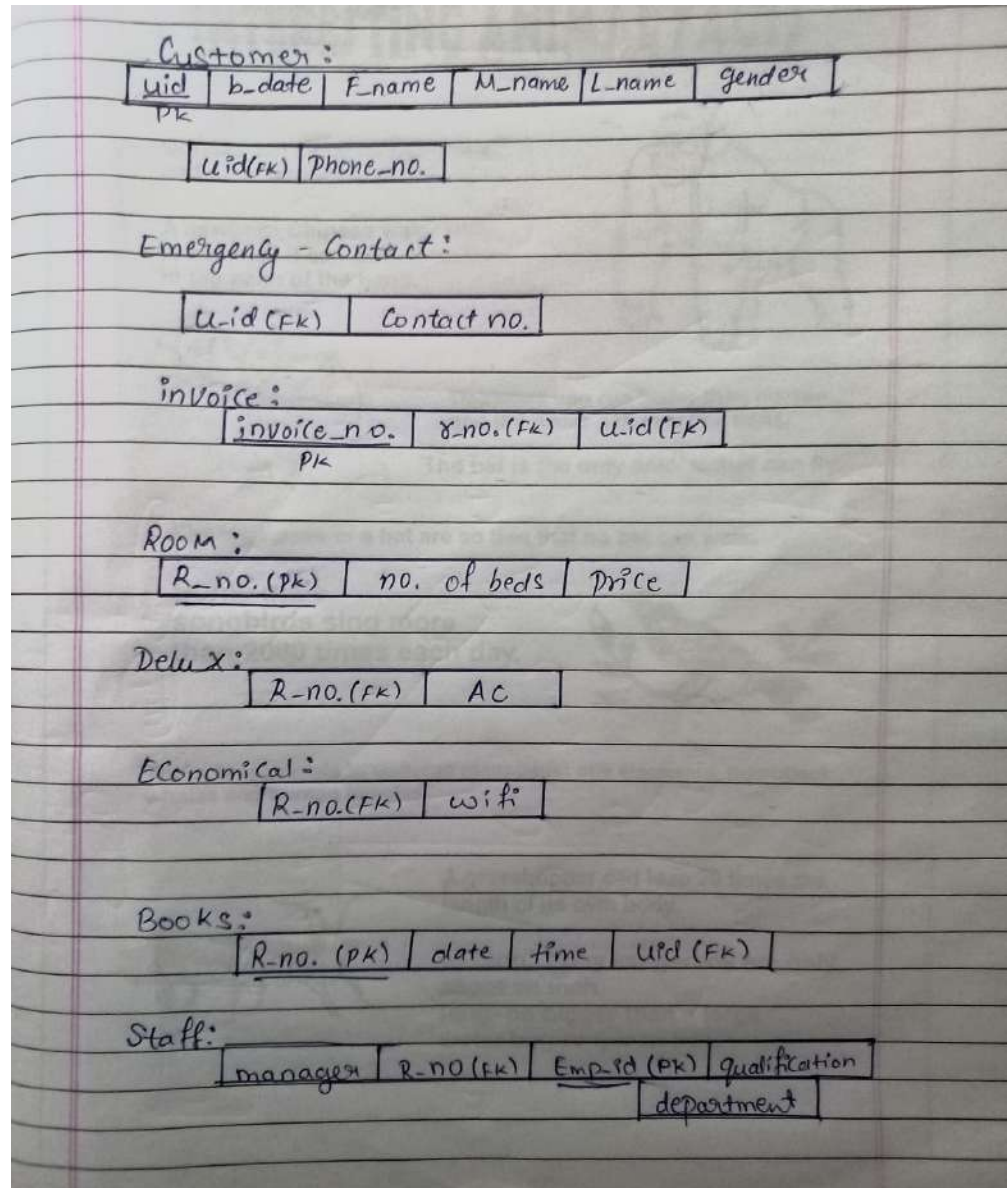 Customer:
uid b_date F_name M_name L_name gender
PK
uid(FK) Phone_no.
Emergency - Contact:
U_id (FK) Contact no.
invoice:
invoice_no. r_no.(FK) U_id(FK)
PK
Room:
R_no. (PK) no. of beds Price
Delu x:
R_no.(FK) AC
Economical:
R_no.(FK) wifi
Books:
R_no. (PK) date time Uid (FK)
Staff:
manager R_no (FK) Emp_id (PK) qualification
department